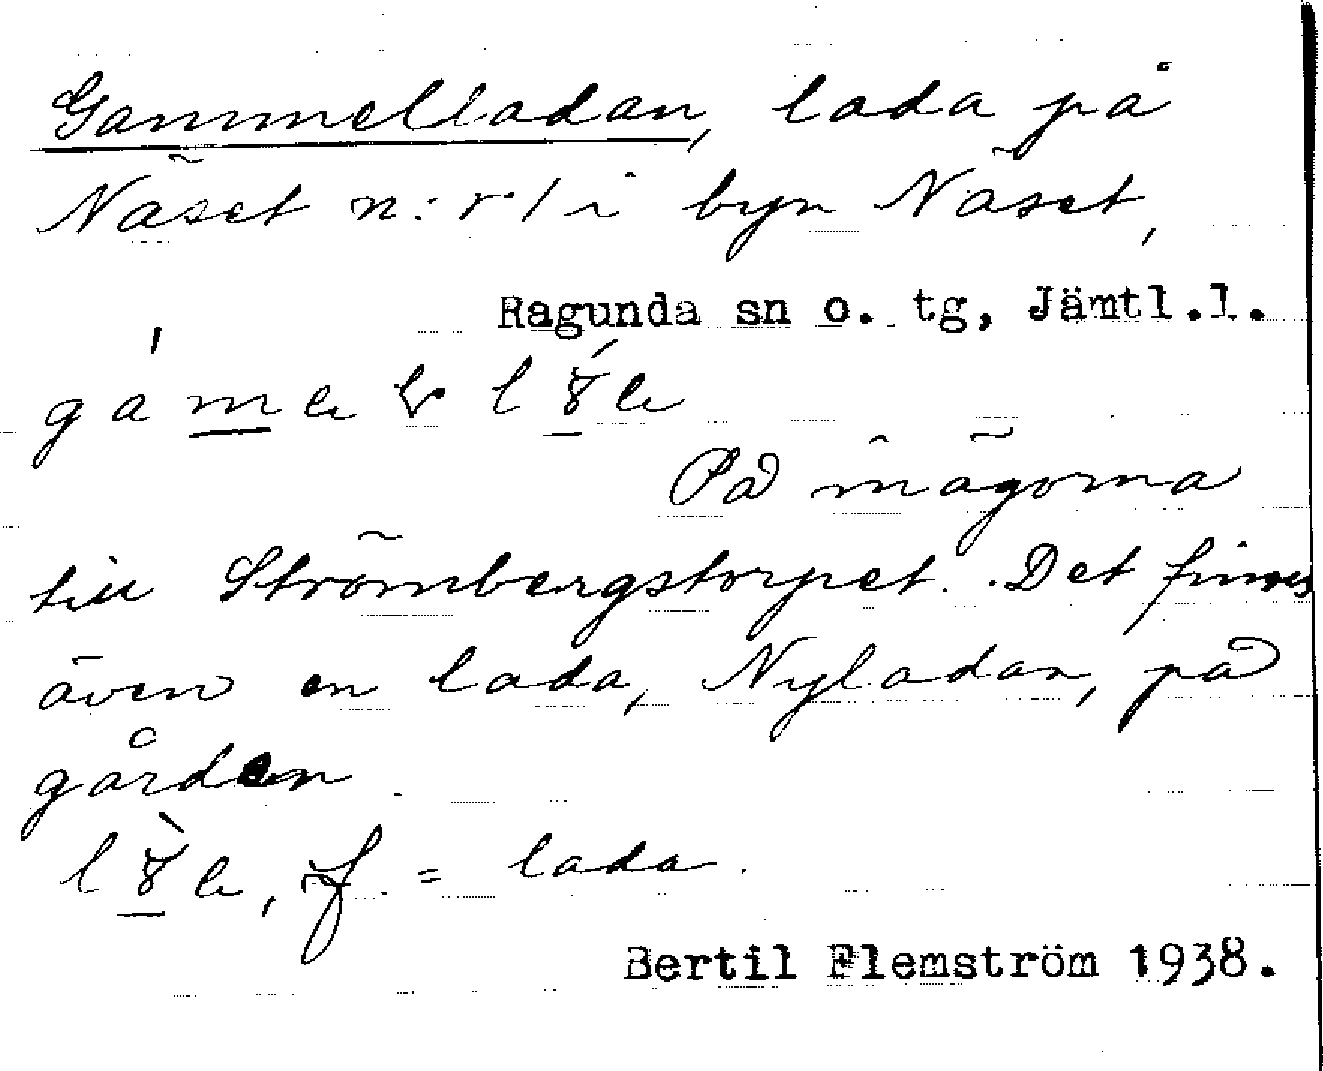 Gammelladan, lada på
Näset n:r 1 i byn Näset,
Ragunda sn o. tg, Jämtl.l.
På inägorna
till Strömbergstorpet. Det finnes
även en lada, Nyladan, på
gården.
f. = lada.
Bertil Flemström 1938.